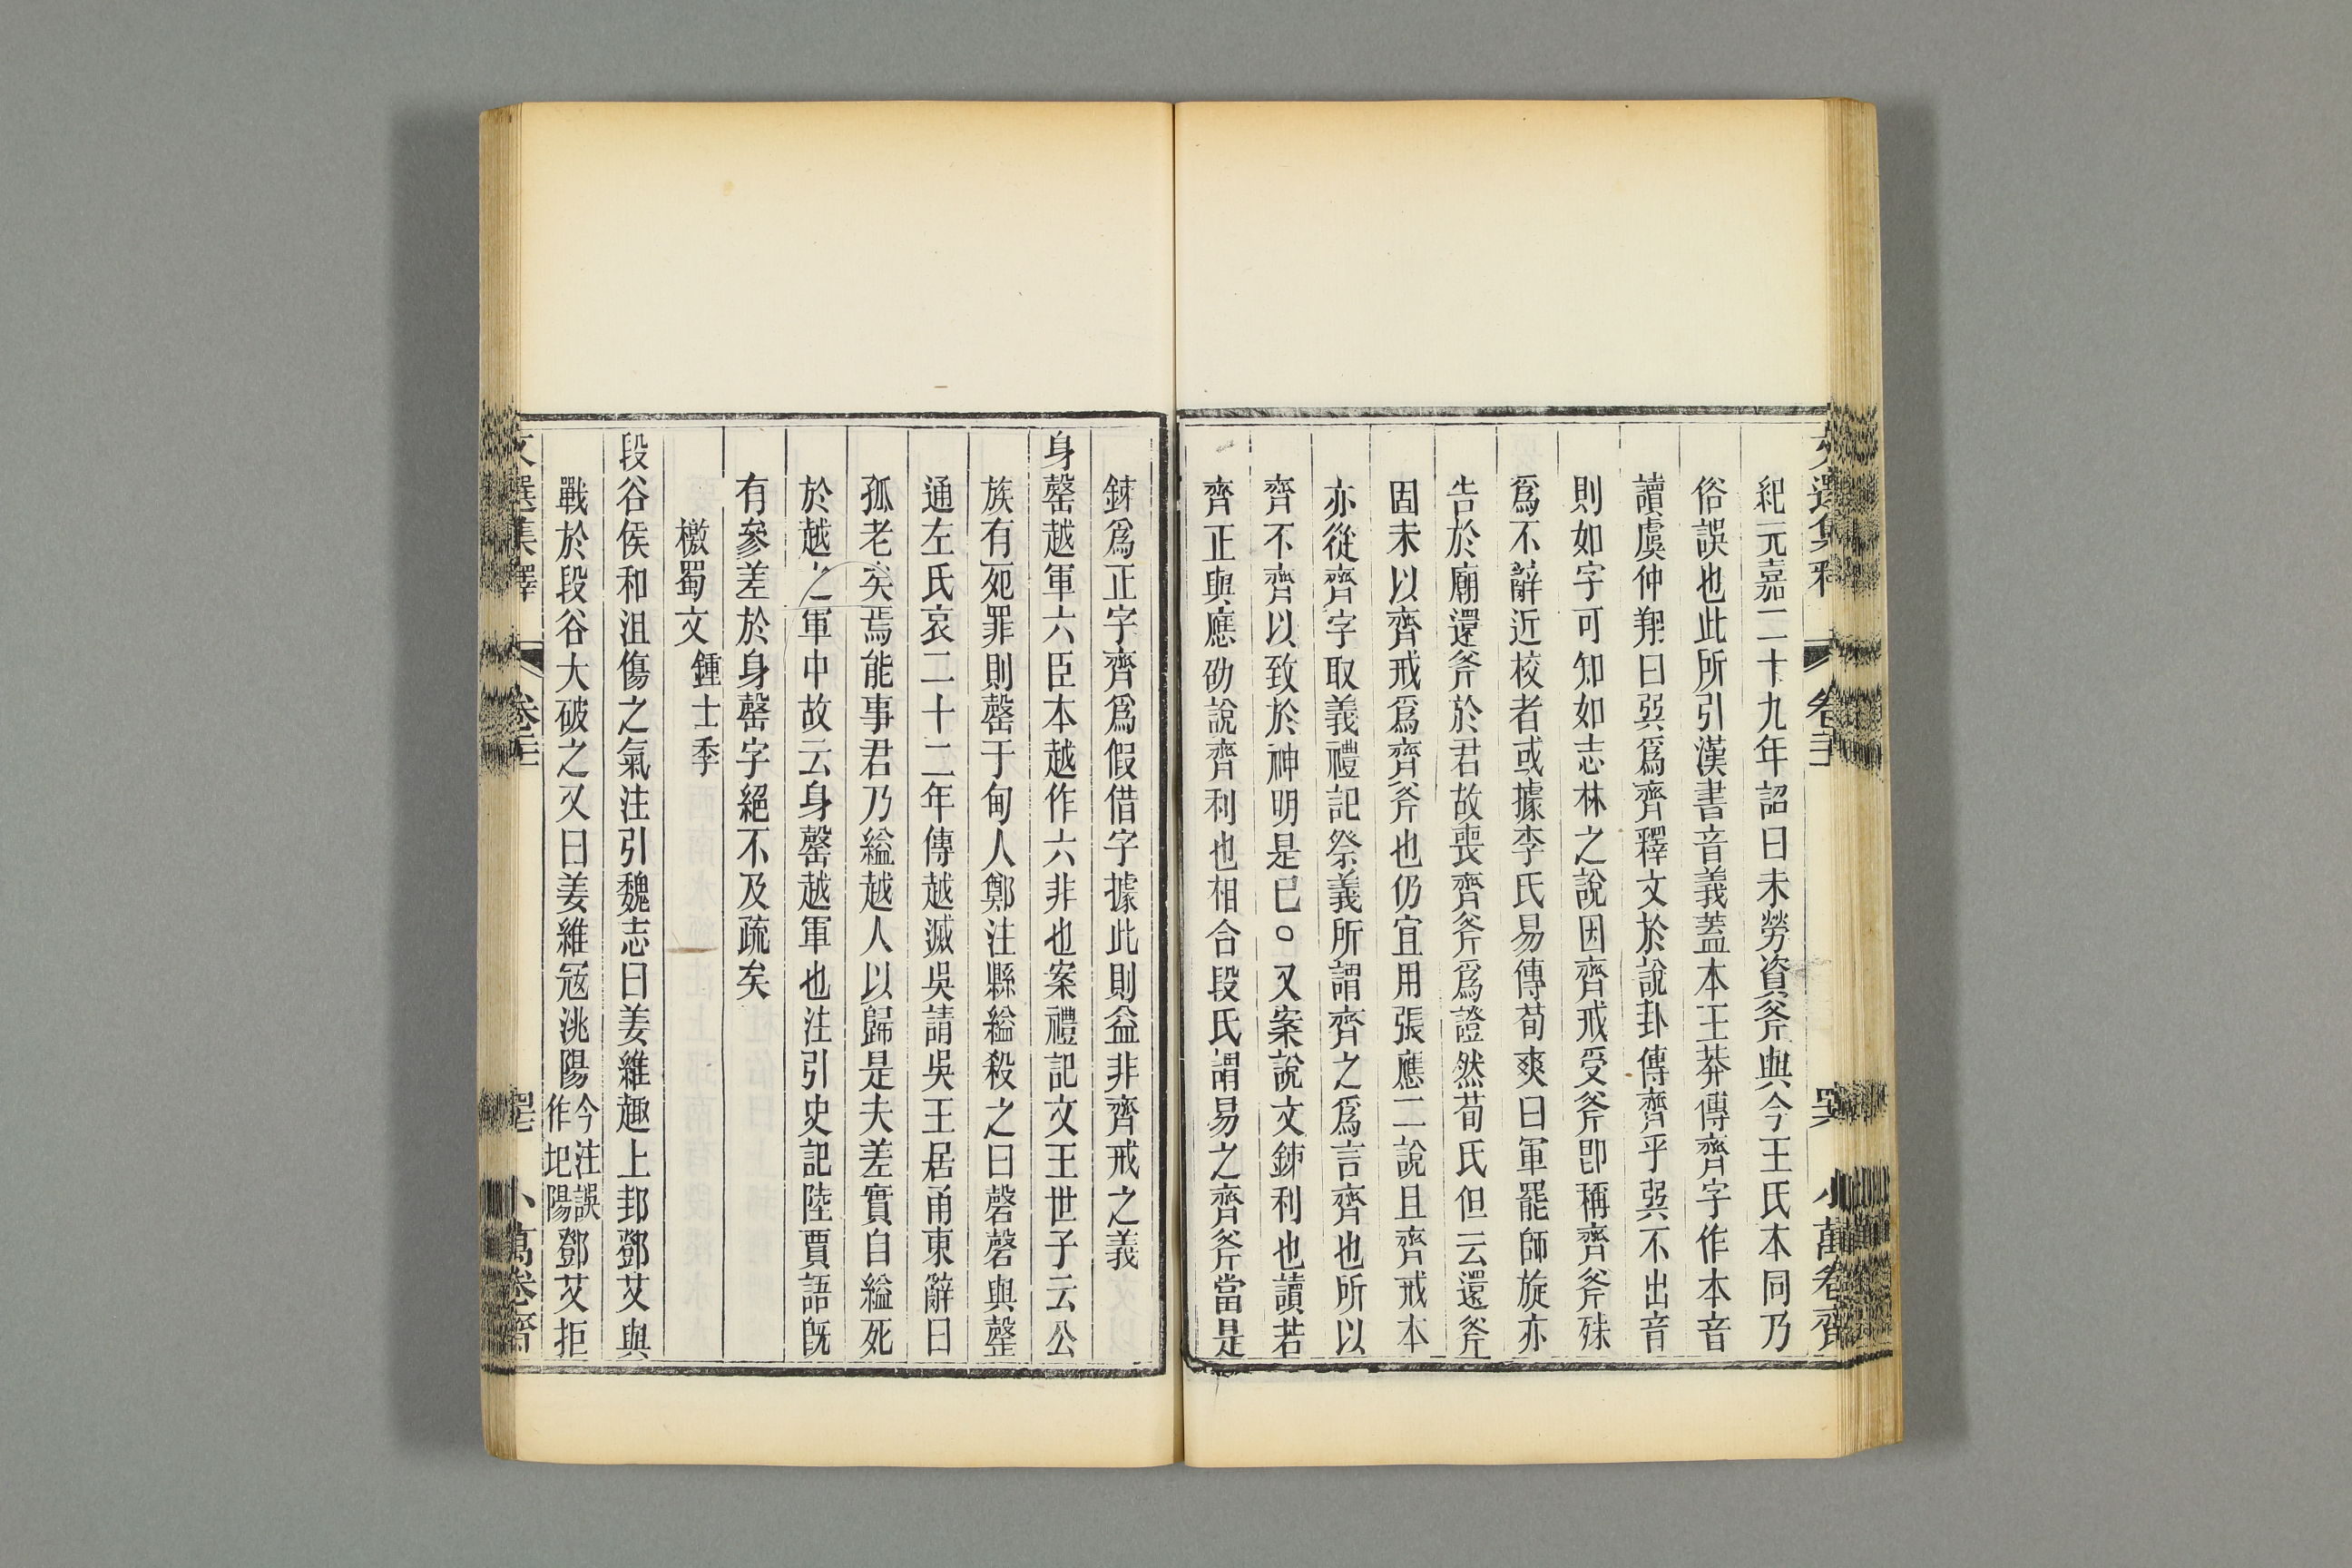 紀元嘉二十九年詔曰未勞資斧與今王氏本同乃
俗誤也此所引漢書音義蓋本王莽傳齊字作本音
讀虞仲翔曰巽爲齊釋文於說卦傳齊乎巽不出音
則如字可知如志林之說因齊戒受斧卽稱齊斧殊
爲不辭近校者或據李氏易傳荀爽曰軍罷師旋亦
告於廟還斧於君故喪齊斧爲證然荀氏但云還斧
固未以齊戒爲齊斧也仍宜用張應二說且齊戒本
亦從齊字取義禮記祭義所謂齊之爲言齊也所以
齊不齊以致於神明是已○又案說文銐利也讀若
齊正與應劭說齊利也相合段氏謂易之齊斧當是
銐爲正字齊爲假借字據此則益非齊戒之義
身罄越軍六臣本越作六非也案禮記文王世子云公
族有死罪則罄于甸人鄭注縣縊殺之曰磬磬與罄
通左氏哀二十二年傳越滅吳請吳王居甬東辭曰
孤老矣焉能事君乃縊越人以歸是夫差實自縊死
於越之軍中故云身罄越軍也注引史記陸賈語旣
有參差於身罄字絕不及疏矣
檄蜀文 鍾士季
段谷侯和沮傷之氣注引魏志曰姜維趣上邽鄧艾與
戰於段谷大破之又曰姜維寇洮陽今注誤作圯陽鄧艾拒
文選集釋 卷 小萬卷齋